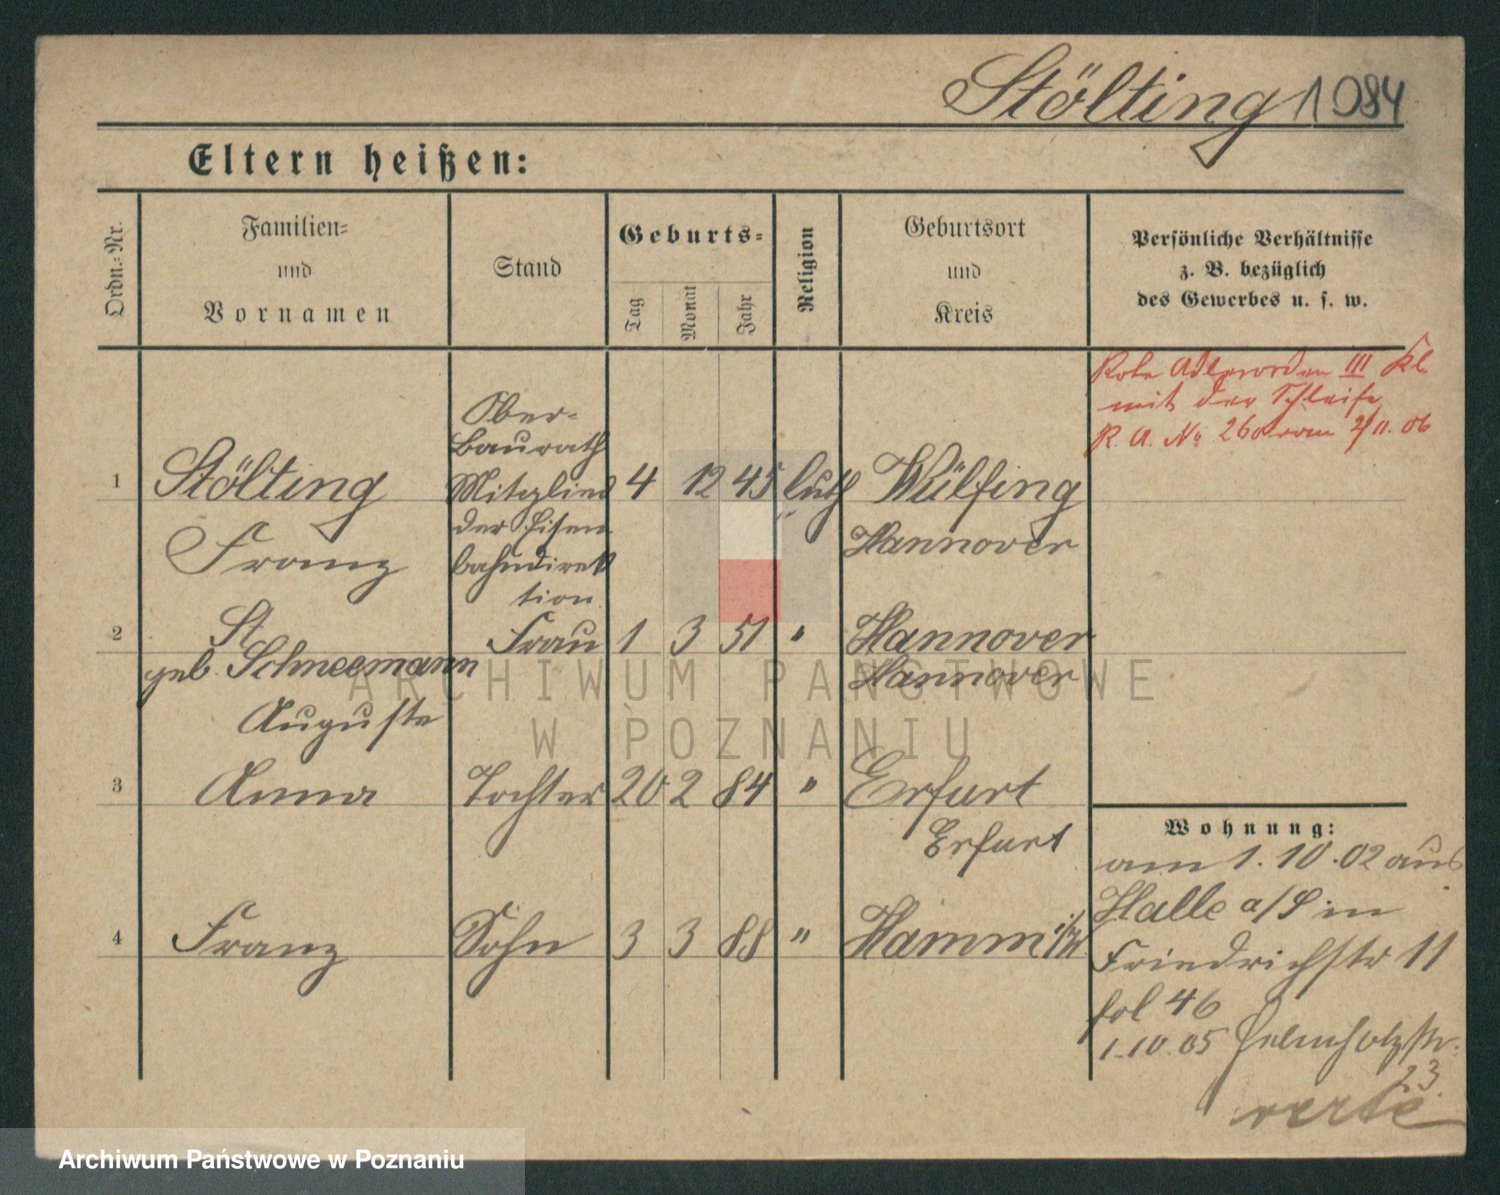 Stölting 1084
Eltern heißen:
Ordn.-Nr.
Familien-
und
Vornamen
Stand
Geburts-
Tag
Monat
Jahr
Religion
Geburtsort
und
Kreis
Persönliche Verhältnisse
z. B. bezüglich
des Gewerbes u. s. w.
Rote Adlerorden III Kl
mit der Schleife
R. A. No 260 vom 2/11. 06
Ober-
Baurath
1 Stölting Mitglied 4 12 45 luth Wülfing
der Eisen
Franz Hannover
bahndirek
tion
2 St Frau 1 3 51 " Hannover
geb. Schneemann Hannover
Auguste
3 Anna Tochter 20 2 84 " Erfurt
Erfurt
Wohnung:
am 1. 10. 02 aus
Halle a/S in
4 Franz Sohn 3 3 88 " Hamm i/W
Friedrichstr 11
fol 46
1.10.05 Helmholzstr.
23
verte
ARCHIWUM PAŃSTWOWE
W POZNANIU
Archiwum Państwowe w Poznaniu